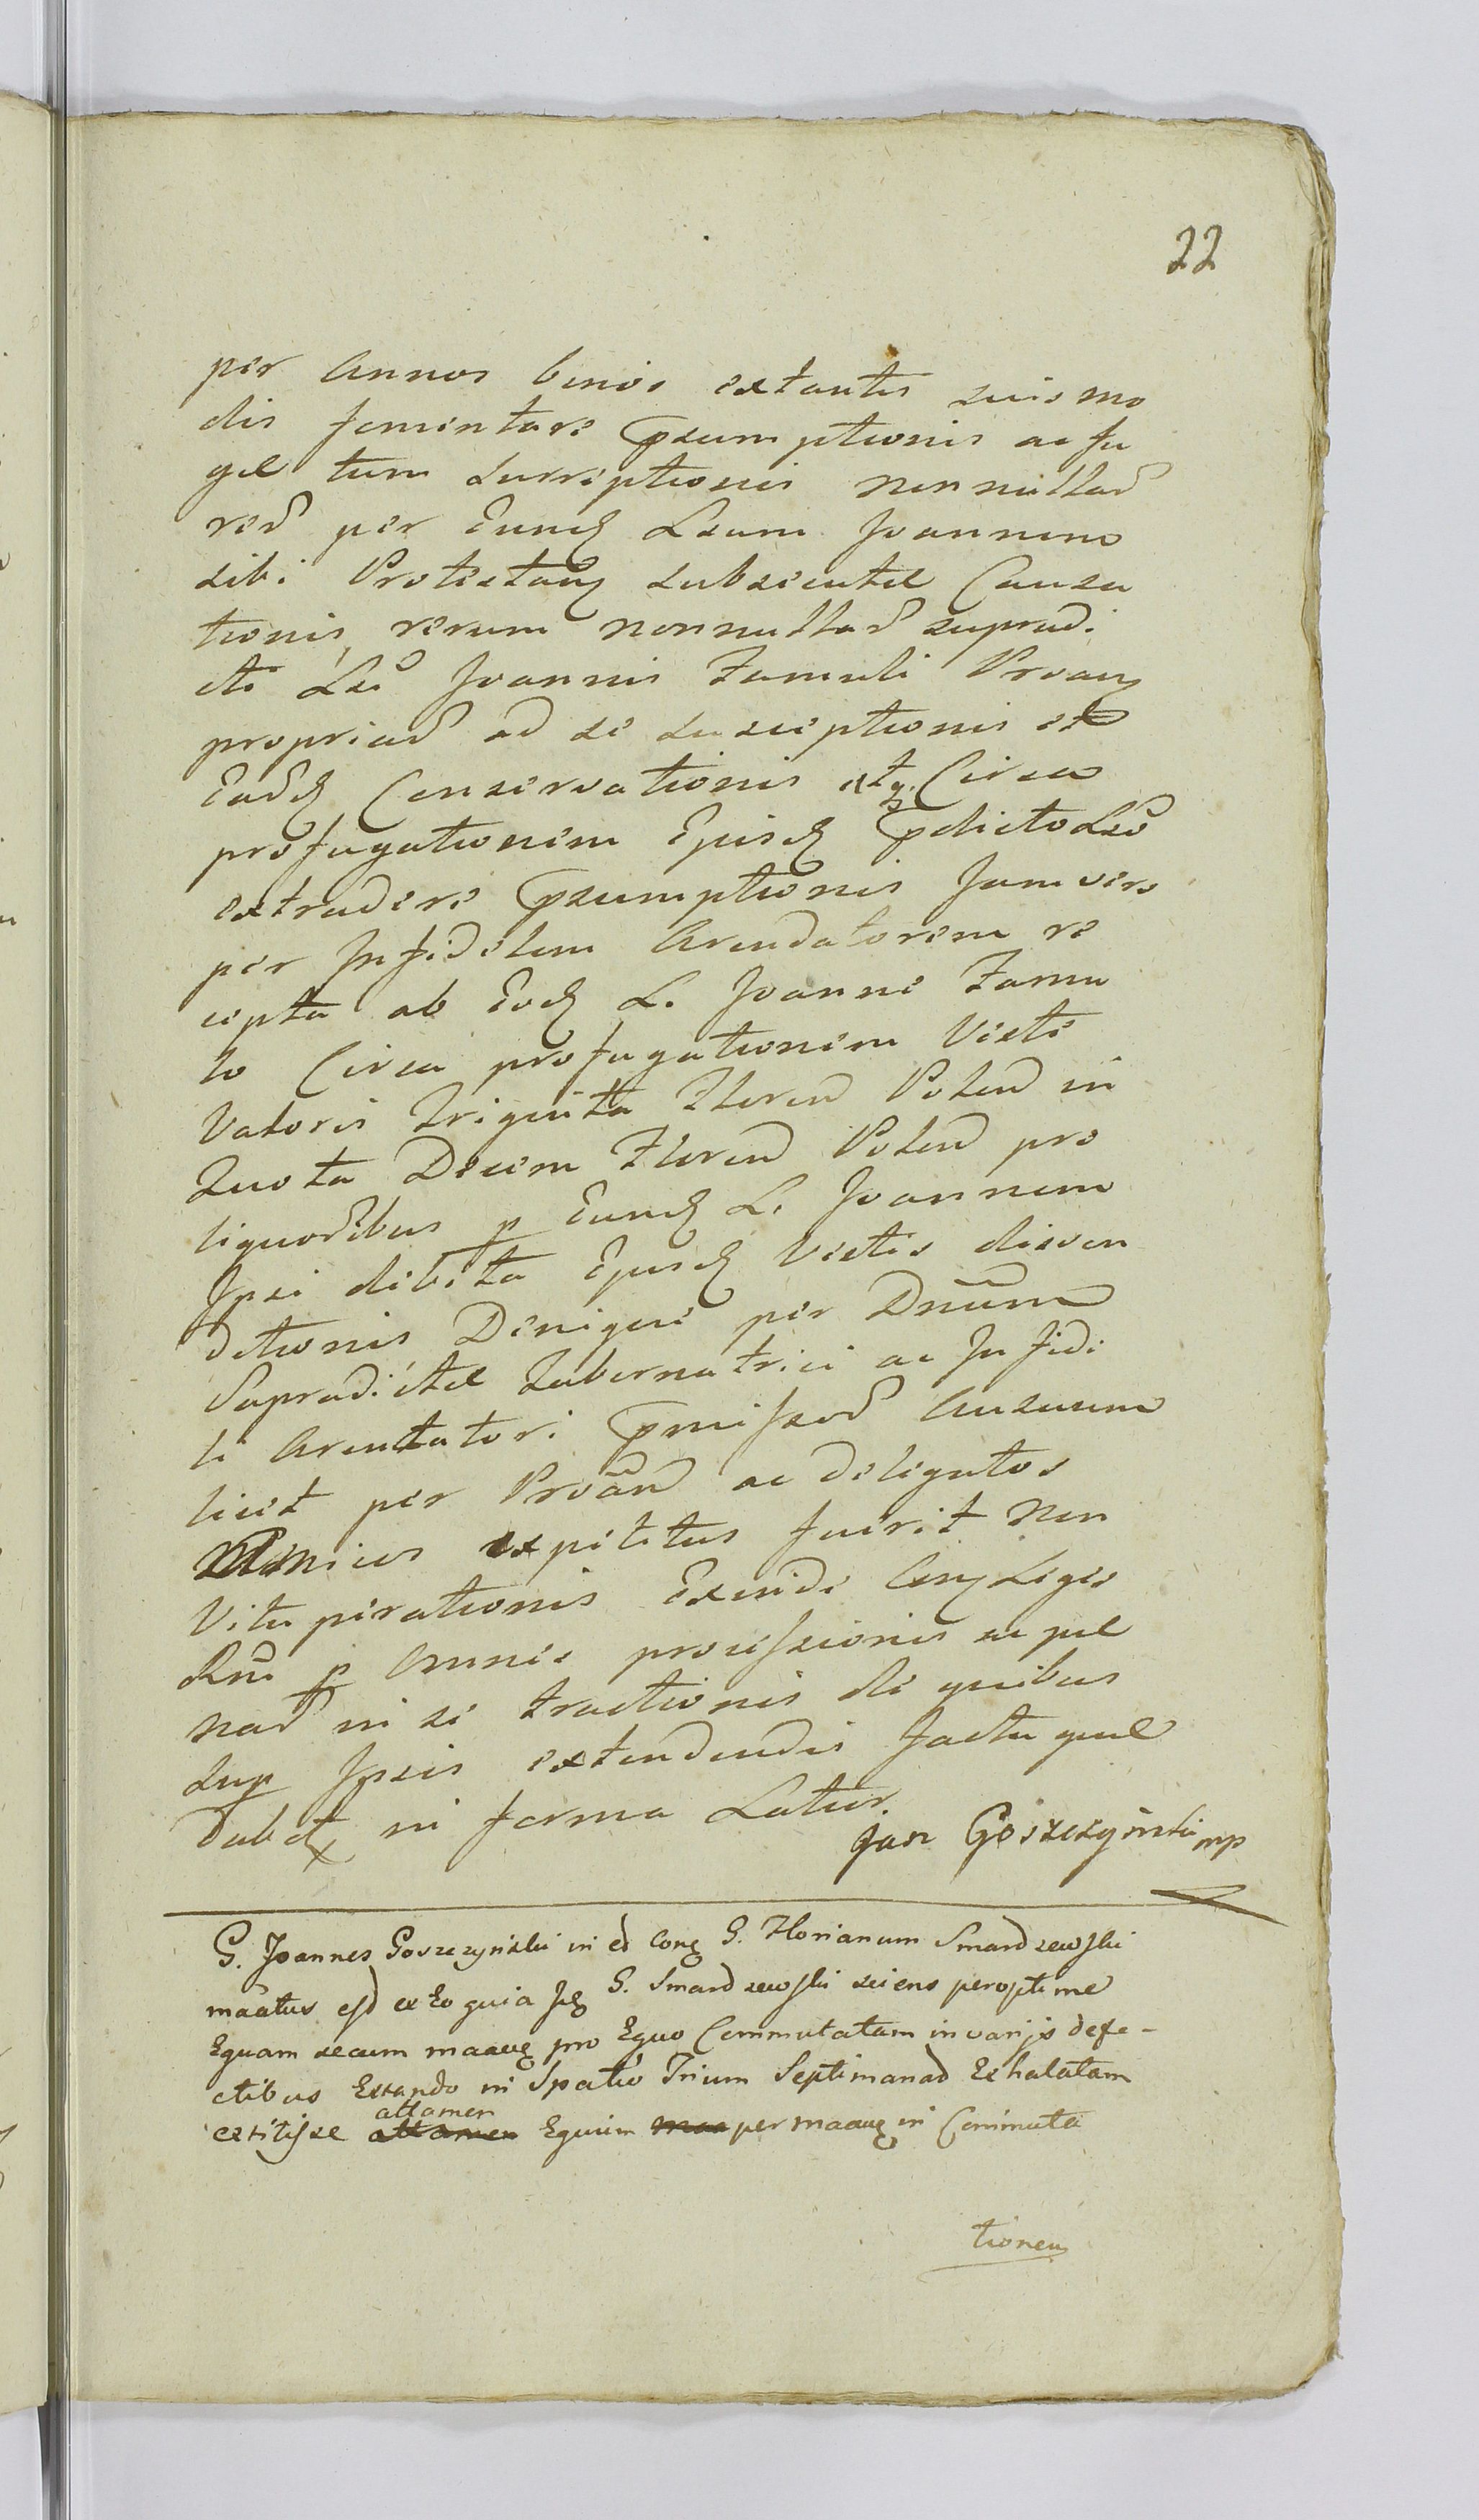 22
per Annos binos extantis suis mo
dis fomentare psumptionis ac fu
gae tum surreptionis nonnullar
rer per Eund Lsum Joannem
sibi Protestanq subsecutae Causa
tionis, rerum nonnullar supradi
cti Lsi Joannis Famuli Proanq
propriar ad se susceptionis et
Ead Conservationis etq Circa
profugationem Ejusd pdicto Lso
extradere psumptionis Jam vero
per Infidelem Arendatorem re
cepta ab Eod L. Joanne Famu
lo Circa profugationem Veste
Valoris triginta Floren Polon in
Quota Decem Floren Polon pro
liquoribus p Eund L. Joannem
Ipsi debita Ejusd Vestis disven
ditionis Denique per Dnum
Supradictae Tabernatrici ac Infide
li Arentatori pmissor Ausuum
licet per Proan ac delegatos
Amicos expetitus fuerit non
Vituperationis Exinde Leges
Rni p Omnes processionis ac pae
nar in se tractionis de quibus
sup Ipsis extendendis Facta quae
dab in forma Latior.
Jan Goszczyński mp
G. Joannes Goszczyński in et Conq G. Florianum Smardzewski
maatus est ex Eo quia Id G. Smardzewski sciens peroptime
Equam secum maaneq pro Equo Commutatam in varijs defe-
ctibus Extando in Spatio Trium Septimanar Exhalatam
extitisse attamen attamen Equum per maaneq in Commuta
tionem